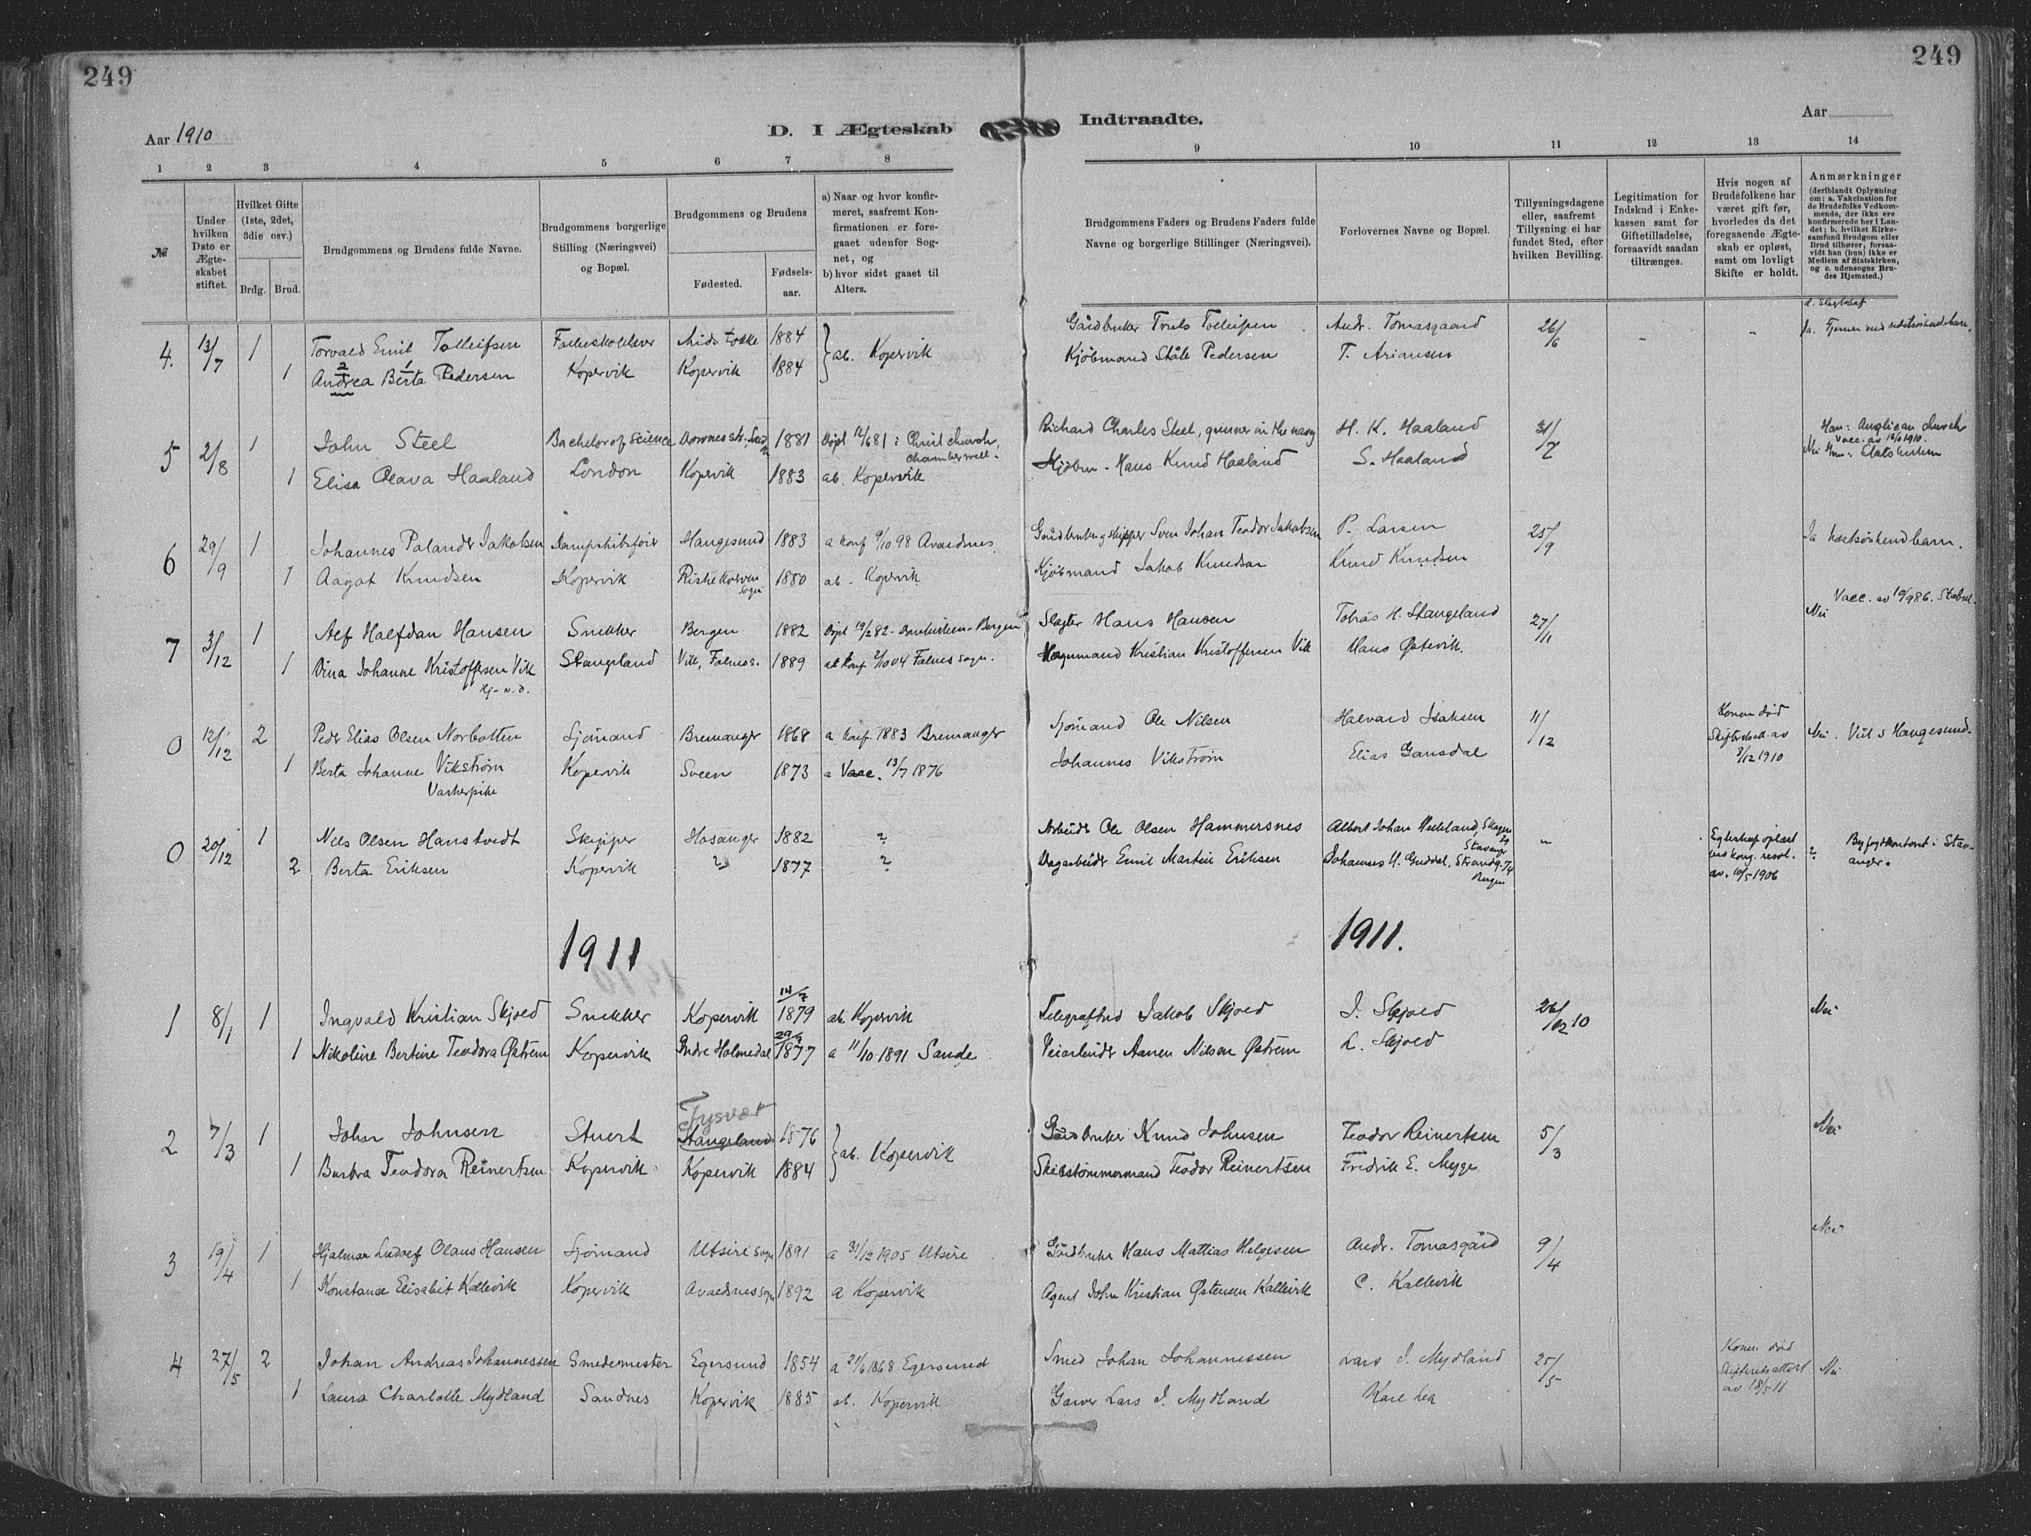 249
249
Aar 1910
D. I Ægteskab Indtraadte.
Aar
1 2 3 4 5 6 7 8 9 10 11 12 13 14
№
Under hvilken Dato er Ægteskabet stiftet.
Hvilket Gifte (1ste, 2det, 3die osv.)
Brdg. Brud.
Brudgommens og Brudens fulde Navne.
Brudgommens borgerlige Stilling (Næringsvei) og Bopæl.
Brudgommens og Brudens
Fødested.
Fødsels-aar.
a) Naar og hvor konfirmeret, saafremt Konfirmationen er foregaaet udenfor Sognet, og
b) hvor sidst gaaet til Alters.
Brudgommens Faders og Brudens Faders fulde Navne og borgerlige Stillinger (Næringsvei).
Forlovernes Navne og Bopæl.
Tillysningsdagene eller, saafremt Tillysning ei har fundet Sted, efter hvilken Bevilling.
Legitimation for Indskud i Enkekassen samt for Giftetilladelse, forsaavidt saadan tiltrænges.
Hvis nogen af Brudefolkene har været gift før, hvorledes da det foregaaende Ægteskab er opløst, samt om lovligt Skifte er holdt.
Anmærkninger
(deriblandt Oplysning om: a. Vakcination for de Brudefolks Vedkommende, der ikke ere konfirmerede her i Landet; b. hvilket Kirkesamfund Brudgom eller Brud tilhører, forsaavidt han (hun) ikke er Medlem af Statskirken, og c. udensogns Brudes Hjemsted.)
4. 13/7 1 Torvald Emil Tolleifsen 1884 Gårdbruker Truls Tolleifsen Andr. Tomasgaard 26/6
1 Andrea Berta Pedersen Kopervik Kopervik 1884 ab. Kopervik Kjøbmand Ståle Pedersen T. Ariansen
5 2/8 1 John Steel Bachelor of Science 1881 Døpt 12/6 81 i Christ church, Richard Charles Steel, gunner in the navy H. K. Haaland 31/7 Han: Anglican church
1 Elisa Olava Haaland London Kopervik 1883 ab. Kopervik Kjøbm. Hans Knud Haaland S. Haaland
6 29/9 1 Johannes Palander Jakobsen Haugesund 1883 a konf 9/10 98 Avaldsnes. Gårdbruker og skipper Sven Johan Teodor Jakobsen P. Larsen 25/9 Ja næstsøskendebarn.
1 Aagot Knudsen Kopervik 1880 ab. Kopervik Kjøbmand Jakob Knudsen Knud Knudsen
7 3/12 1 Alf Halfdan Hansen Snekker Bergen 1882 Slagter Hans Hansen Tobias H. Stangeland 27/11 Nei
1 Vina Johanne Kristoffersen Vik Stangeland Vik, Falnes s. 1889 ab konf 2/10 04 Falnes sogn. Kristian Kristoffersen Vik Hans Østevik.
0 12/12 2 Peder Elias Olsen Norbotten Sjømand Bremanger 1868 a konf. 1883 Bremanger Sjømand Ole Nilsen Halvard Isaksen 11/12 Konen død Skifteattest av 3/12 1910 Nei. Viet i Haugesund.
1 Berta Johanne Vikstrøm Kopervik Sveen 1873 a Vacc. 13/7 1876 Johannes Vikstrøm Elias Gansdal
Vaskerpike
0 20/12 1 Nels Olsen Hanstvedt Skipper Hosanger 1882 ? Arbeider Ole Olsen Hammersnes Albert Johan Meeland, Stavanger
2 Berta Eriksen Kopervik ? 1877 ? Dagarbeider Emil Martin Eriksen Johannes H. Guddal, Strandg. 74 Bergen Egteskap opløst ved kong. resol. av 10/5 1906 ? Byfogdkontoret i Stavanger.
1911 1911.
1 8/1 1 Ingvald Kristian Skjold Snekker Kopervik 14/7 1879 ab. Kopervik Telegrafbud Jakob Skjold J. Skjold 26/12 10 Nei
1 Nikoline Bertine Teodora Østrem Kopervik Indre Holmedal 29/9 1877 a 11/10 1891 Sande Veiarbeider Aanen Nilsen Østrem L. Skjold
2 7/3 1 John Johnsen Stuert Tysvær Stangeland 1876 Gårdbruker Knud Johnsen Teodor Reinertsen 5/3 Nei
1 Barbra Teodora Reinertsen Kopervik Kopervik 1884 ab. Kopervik Skibstømmermand Teodor Reinertsen Fredrik E. Myge
3 19/4 1 Hjalmar Ludolf Olaus Hansen Sjømand Utsire sogn 1891 a 31/12 1905 Utsire Gårdbruker Hans Mattias Helgesen Andr. Tomasgård 9/4 Nei
1 Konstance Elisabet Kallevik Kopervik Avaldsnes sogn 1892 a Kopervik Agent John Kristian Østensen Kallevik C. Kallevik
4 27/5 2 Johan Andreas Johannessen Smedemester Egersund 1854 a 21/6 1868 Egersund Smed Johan Johannessen Lars J. Mydland 25/5 Konen død Skifteretsattest av 18/5 11 Nei
1 Laura Charlotte Mydland Sandnes Kopervik 1885 ab. Kopervik Garver Lars J. Mydland Karl Lea